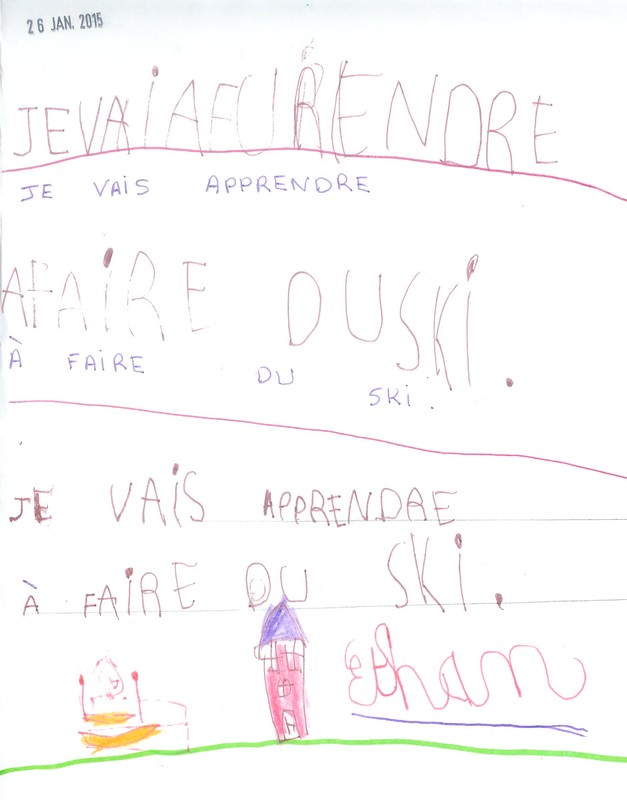 26 JAN. 2015
JEVAIAFURENDRE
JE VAIS APPRENDRE
AFAIRE DUSKI.
À FAIRE DU SKI.
JE VAIS APPRENDRE
À FAIRE DU SKI.
Ethan